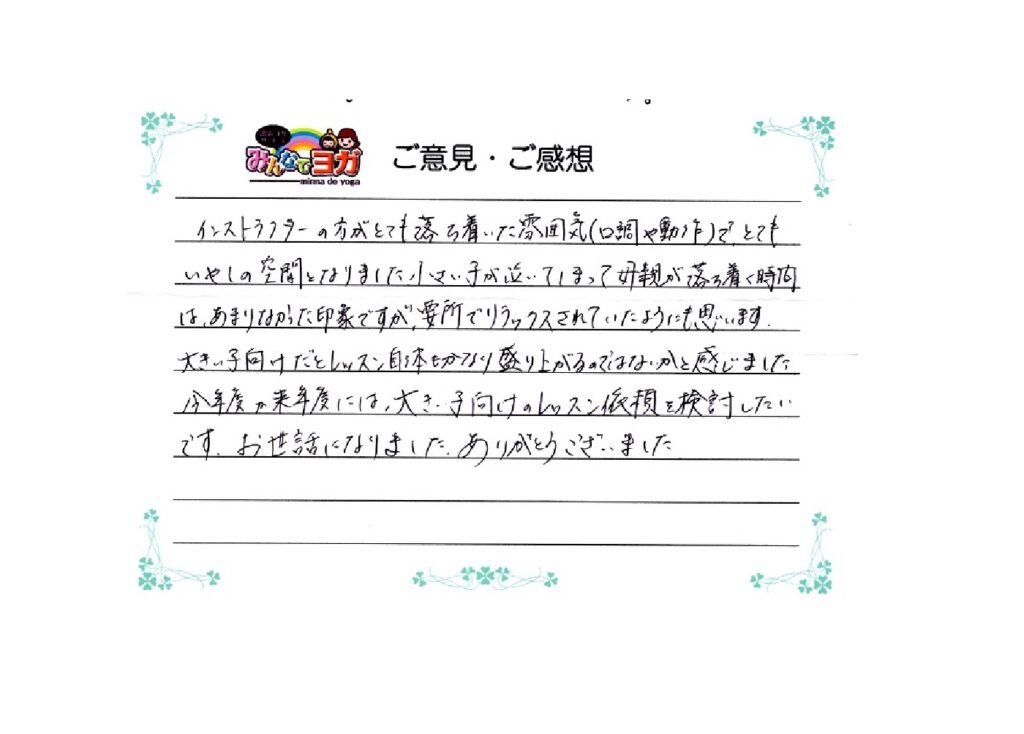 みんなでヨガ
minna de yoga
ご意見・ご感想
インストラクターの方がとても落ち着いた雰囲気(口調や動作)で、とても
いやしの空間となりました。小さい子が泣いてしまって母親が落ち着く時間
は、あまりなかった印象ですが、要所でリラックスされていたようにも思います。
大きい子向けだとレッスン自体もかなり盛り上がるのではないかと感じました
今年度か来年度には、大きい子向けのレッスン依頼を検討したい
です。お世話になりました。ありがとうございました